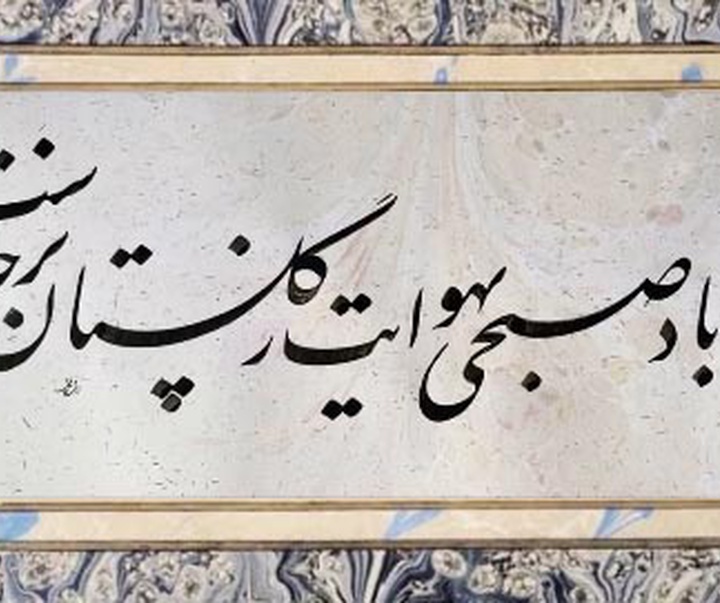 باد صبحی بهوایت ز گلستان برخاست